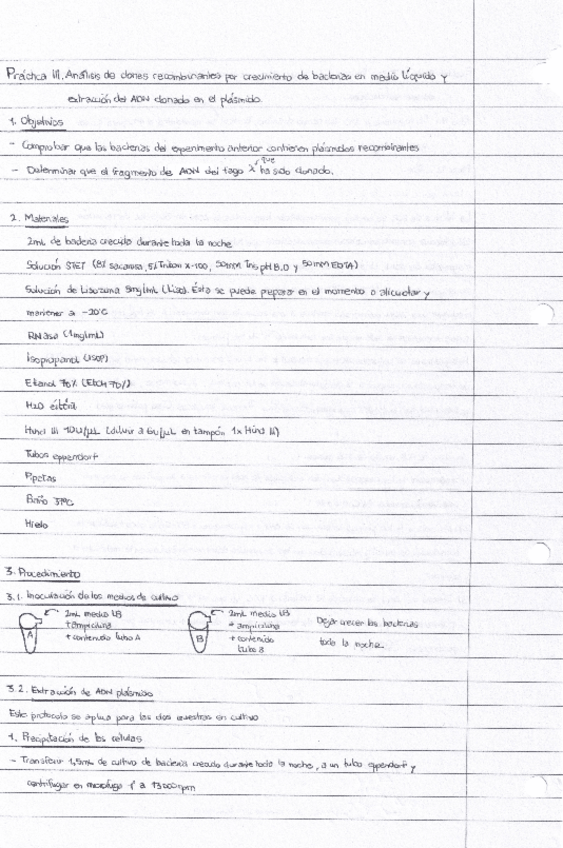 Práctica III. Análisis de clones recombinantes por crecimiento de bacterias en medio líquido y
extracción del ADN clonado en el plásmido.
1. Objetivos
- Comprobar que las bacterias del experimento anterior contienen plásmidos recombinantes
- Determinar que el fragmento de ADN del fago λ que ha sido clonado.
2. Materiales
2mL de bacteria crecida durante toda la noche
Solución STET (8% sacarosa, 5% Triton X-100, 50mM Tris pH 8.0 y 50mM EDTA)
Solución de Lisozima 5mg/mL (Liso). Esta se puede preparar en el momento o alicuotar y
mantener a -20ºC
RNAsa (1mg/mL)
Isopropanol (ISOP)
Etanol 70% (EtOH 70%)
H2O estéril
Hind III 10U/μL (diluir a 6U/μL en tampón 1x Hind III)
Tubos eppendorf
Pipetas
Baño 37ºC
Hielo
3. Procedimiento
3.1. Inoculación de los medios de cultivo
A
2mL medio LB
+ ampicilina
+ contenido tubo A
B
2mL medio LB
+ ampicilina
+ contenido
tubo B
Dejar crecer las bacterias
toda la noche
3.2. Extracción de ADN plásmido
Este protocolo se aplica para las dos muestras en cultivo
1. Precipitación de las células
- Transferir 1,5mL de cultivo de bacteria crecido durante toda la noche, a un tubo eppendorf y
centrifugar en microfuga 1' a 13000rpm